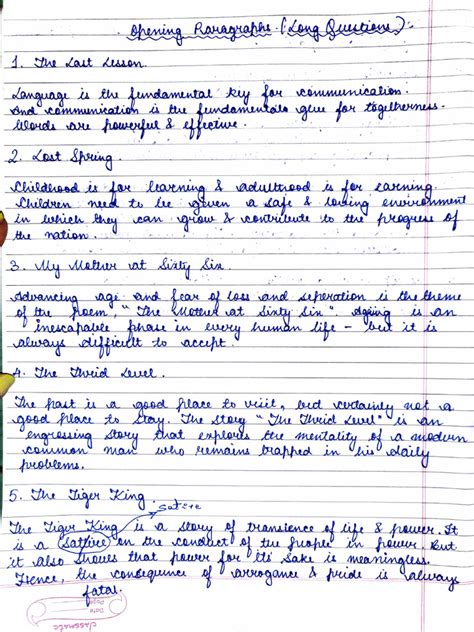 Opening Paragraphs. (Long Questions).
1. The Last Lesson.
Language is the fundamental key for communication.
And communication is the fundamentals glue for togetherness.
Words are powerful & effective.
2. Lost Spring.
Childhood is for learning & adulthood is for earning.
Children need to be given a safe & loving environment
in which they can grow & contribute to the progress of
the nation.
3. My Mother at Sixty Six.
Advancing age and fear of loss and seperation is the theme
of the poem, "The Mother at Sixty Six". Ageing is an
inescapable phase in every human life - but it is
always difficult to accept.
4. The Thrid Level.
The past is a good place to visit, but certainly not a
good place to stay. The story "The Thrid Level" is an
engrossing story that explores the mentality of a modern
common man who remains trapped in his daily
problems.
5. The Tiger King.
satire
The Tiger King is a story of transience of life & power. It
is a sattire on the conduct of the people in power. But
it also shows that power for its sake is meaningless.
Hence, the consequence of arrogance & pride is always
fatal.
classmate
Date
Page